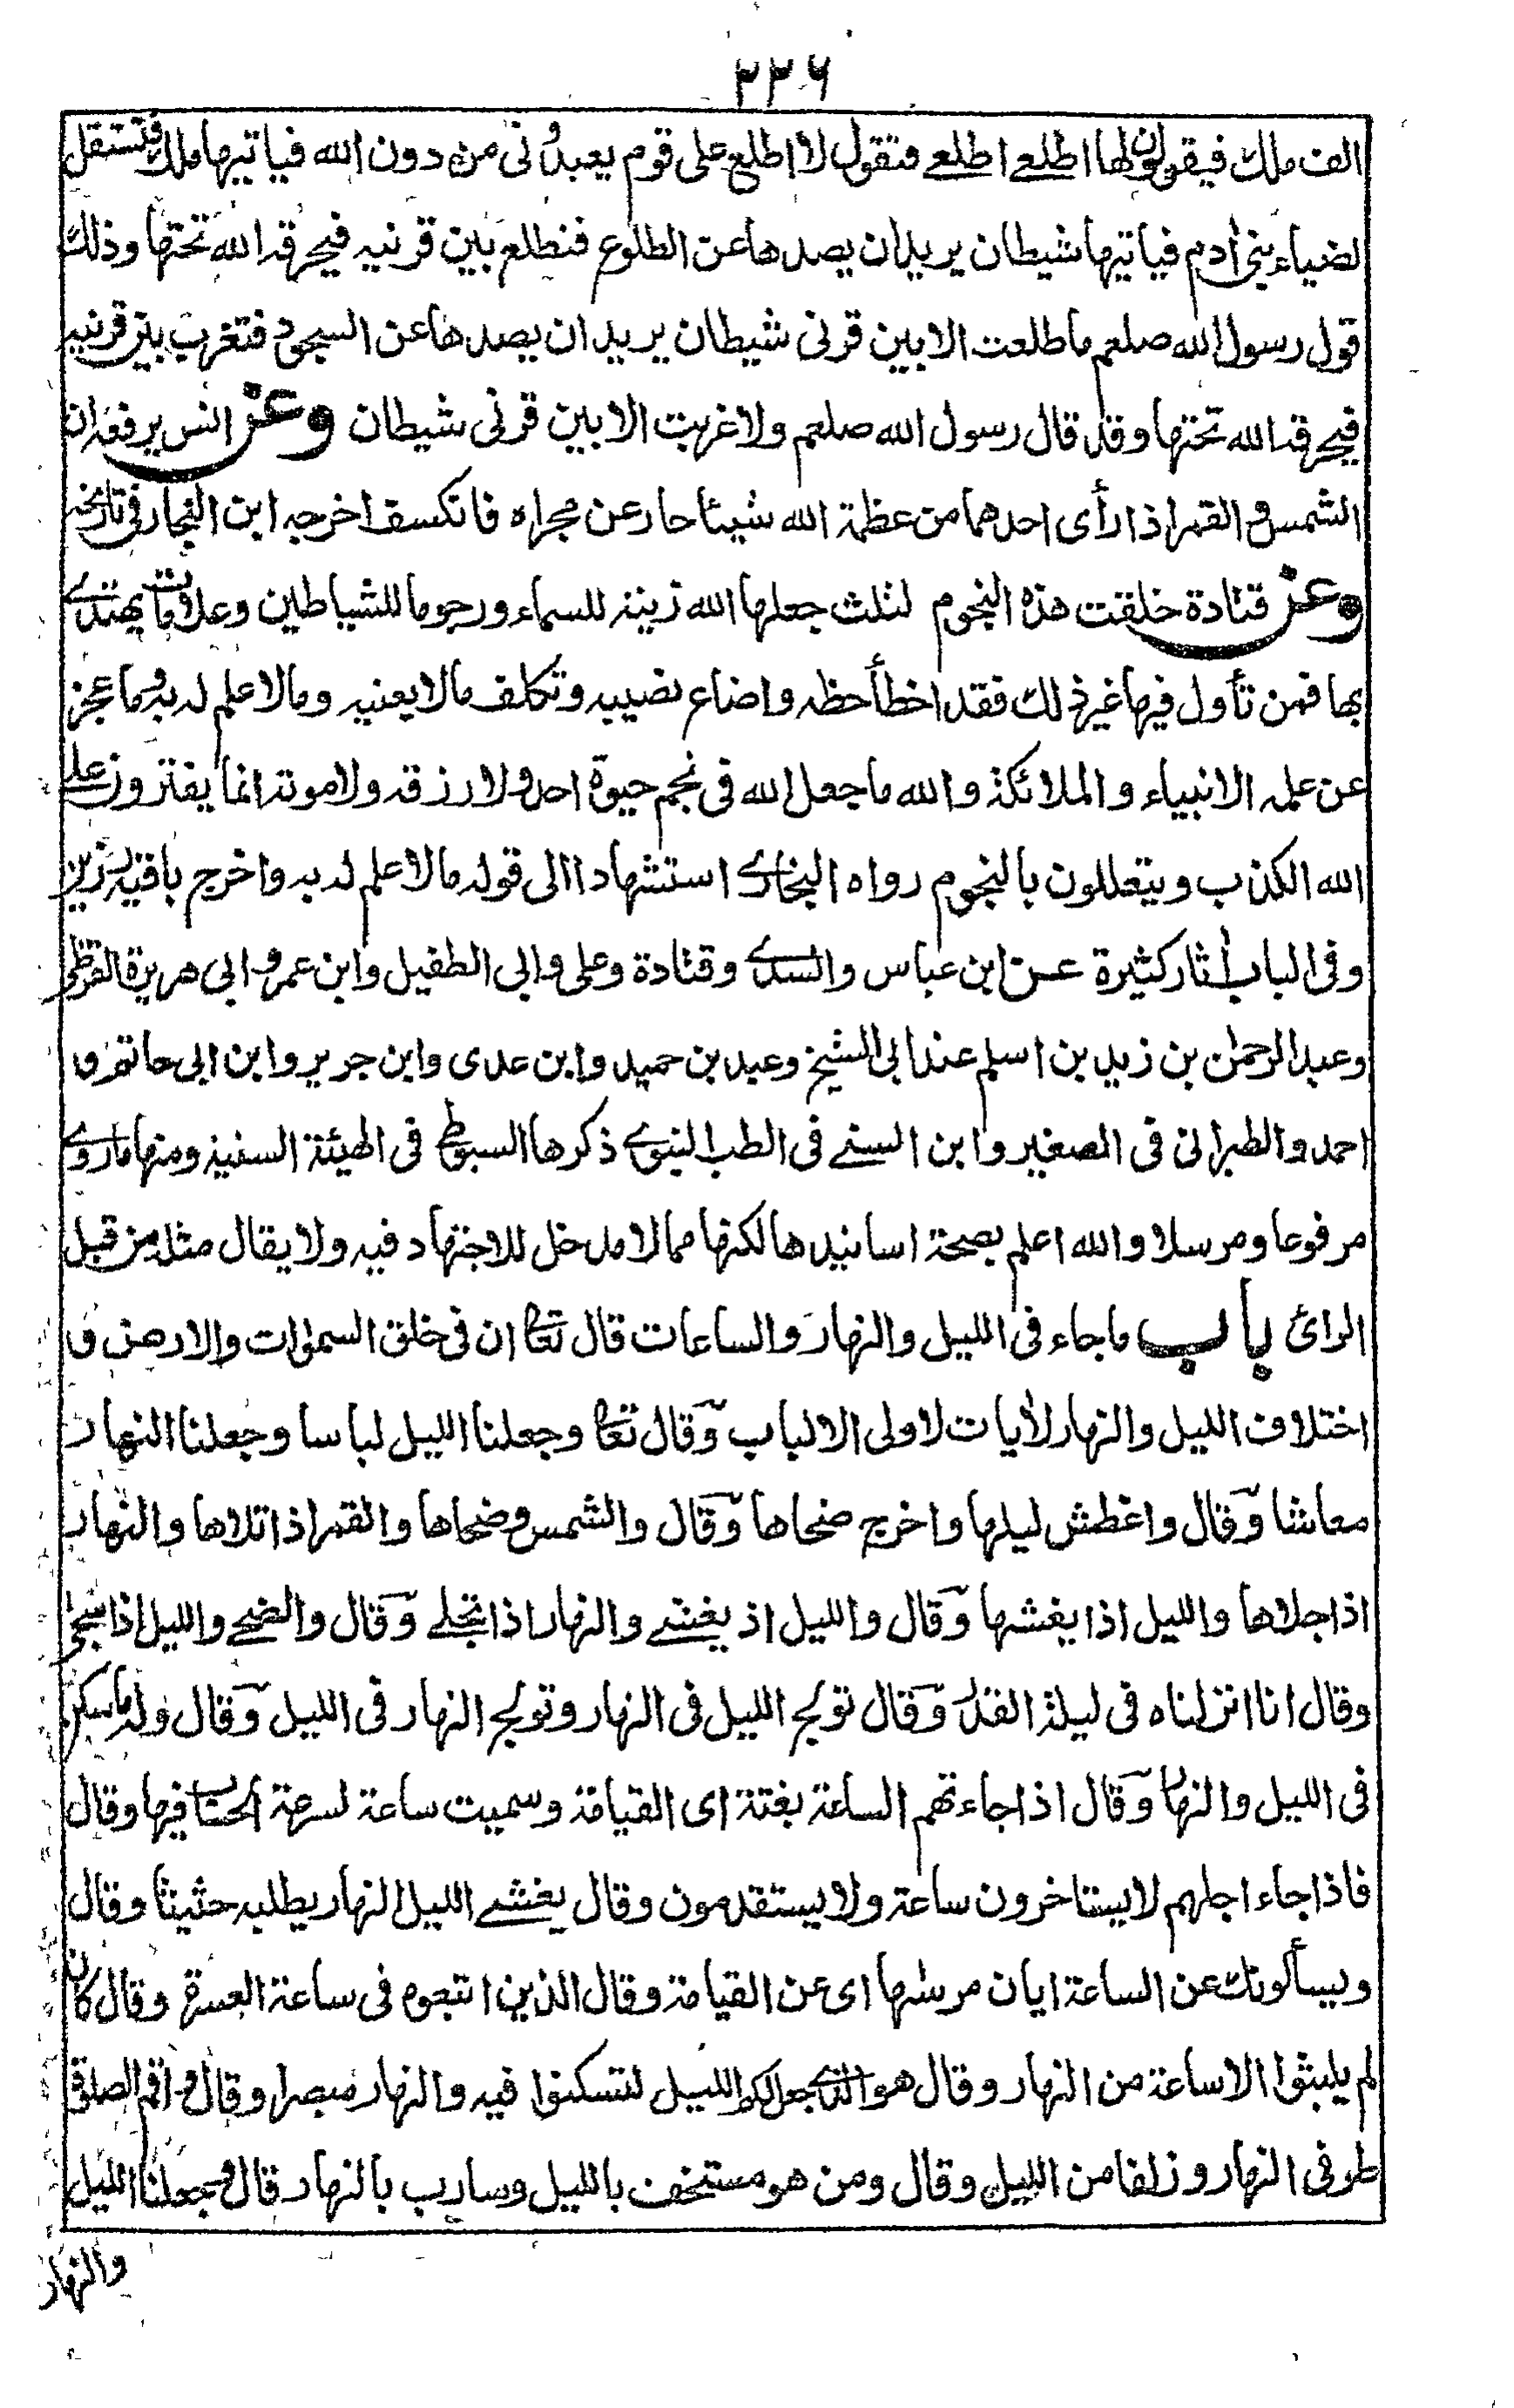 ٢٣٦
الف ملك فيقولون لها اطلعي اطلعي فتقول لا اطلع على قوم يعبدوني من دون الله فياتيها ملك فتستقل
لضياء بني أدم فياتيها شيطان يريد ان يصدها عن الطلوع فتطلع بين قرنيه فيحرقه الله تحتها وذلك
قول رسول الله صلعم ما طلعت الا بين قرني شيطان يريد ان يصدها عن السجود فتغرب بين قرنيه
فيحرقه الله تحتها وقد قال رسول الله صلعم ولا غربت الا بين قرني شيطان وعن انس يرفعه ان
الشمس والقمر اذا رأى احدهما من عظمة الله شيئا حار عن مجراه فانكسف اخرجه ابن النجار في تاريخه
وعن قتادة خلقت هذه النجوم لثلث جعلها الله زينة للسماء ورجوما للشياطين وعلامات يهتدى
بها فمن تأول فيها غير ذلك فقد اخطأ حظه واضاع نصيبه وتكلف مالا يعنيه ومالا علم له به وما عجز
عن علمه الانبياء والملائكة والله ما جعل الله في نجم حيوة احد ولا رزقه ولا موته انما يفترون على
الله الكذب ويتعللون بالنجوم رواه البخاري استشهادا الى قوله مالا علم له به واخرج باقيه رزين
وفي الباب أثار كثيرة عن ابن عباس والسدي وقتادة وعلي وابي الطفيل وابن عمرو ابي هريرة القرظي
وعبد الرحمن بن زيد بن اسلم عند ابي الشيخ وعبد بن حميد وابن عدى وابن جرير وابن ابي حاتم و
احمد والطبراني في الصغير وابن السني في الطب النبوي ذكرها السيوطي في الهيئة السنية ومنها ما روي
مرفوعا ومرسلا والله اعلم بصحة اسانيدها لكنها مما لا مدخل للاجتهاد فيه ولا يقال مثله من قبل
الرائ باب ماجاء في الليل والنهار والساعات قال تعا ان في خلق السموات والارض و
اختلاف الليل والنهار لأيات لاولى الالباب وقال تعا وجعلنا الليل لباسا وجعلنا النهار
معاشا وقال واغطش ليلها واخرج ضحاها وقال والشمس وضحاها والقمر اذا تلاها والنهار
اذا جلاها والليل اذا يغشها وقال والليل اذ يغشى والنهار اذا تجلى وقال والضحى والليل اذا سجى
وقال انا انزلناه في ليلة القدر وقال تولج الليل في النهار وتولج النهار في الليل وقال وله ما سكن
في الليل والنهار وقال اذا جاءتهم الساعة بغتة اى القيامة وسميت ساعة لسرعة الحساب فيها وقال
فاذا جاء اجلهم لا يستاخرون ساعة ولا يستقدمون وقال يغشى الليل النهار يطلبه حثيثا وقال
ويسألونك عن الساعة ايان مرسٰها اى عن القيامة وقال الذين اتبعوه في ساعة العسرة وقال كان
لم يلبثوا الا ساعة من النهار وقال هو الذي جعل لكم الليل لتسكنوا فيه والنهار مبصرا وقال واقم الصلوة
طرفي النهار وزلفا من الليل وقال ومن هو مستخف بالليل وسارب بالنهار قال وجعلنا الليل
والنهار